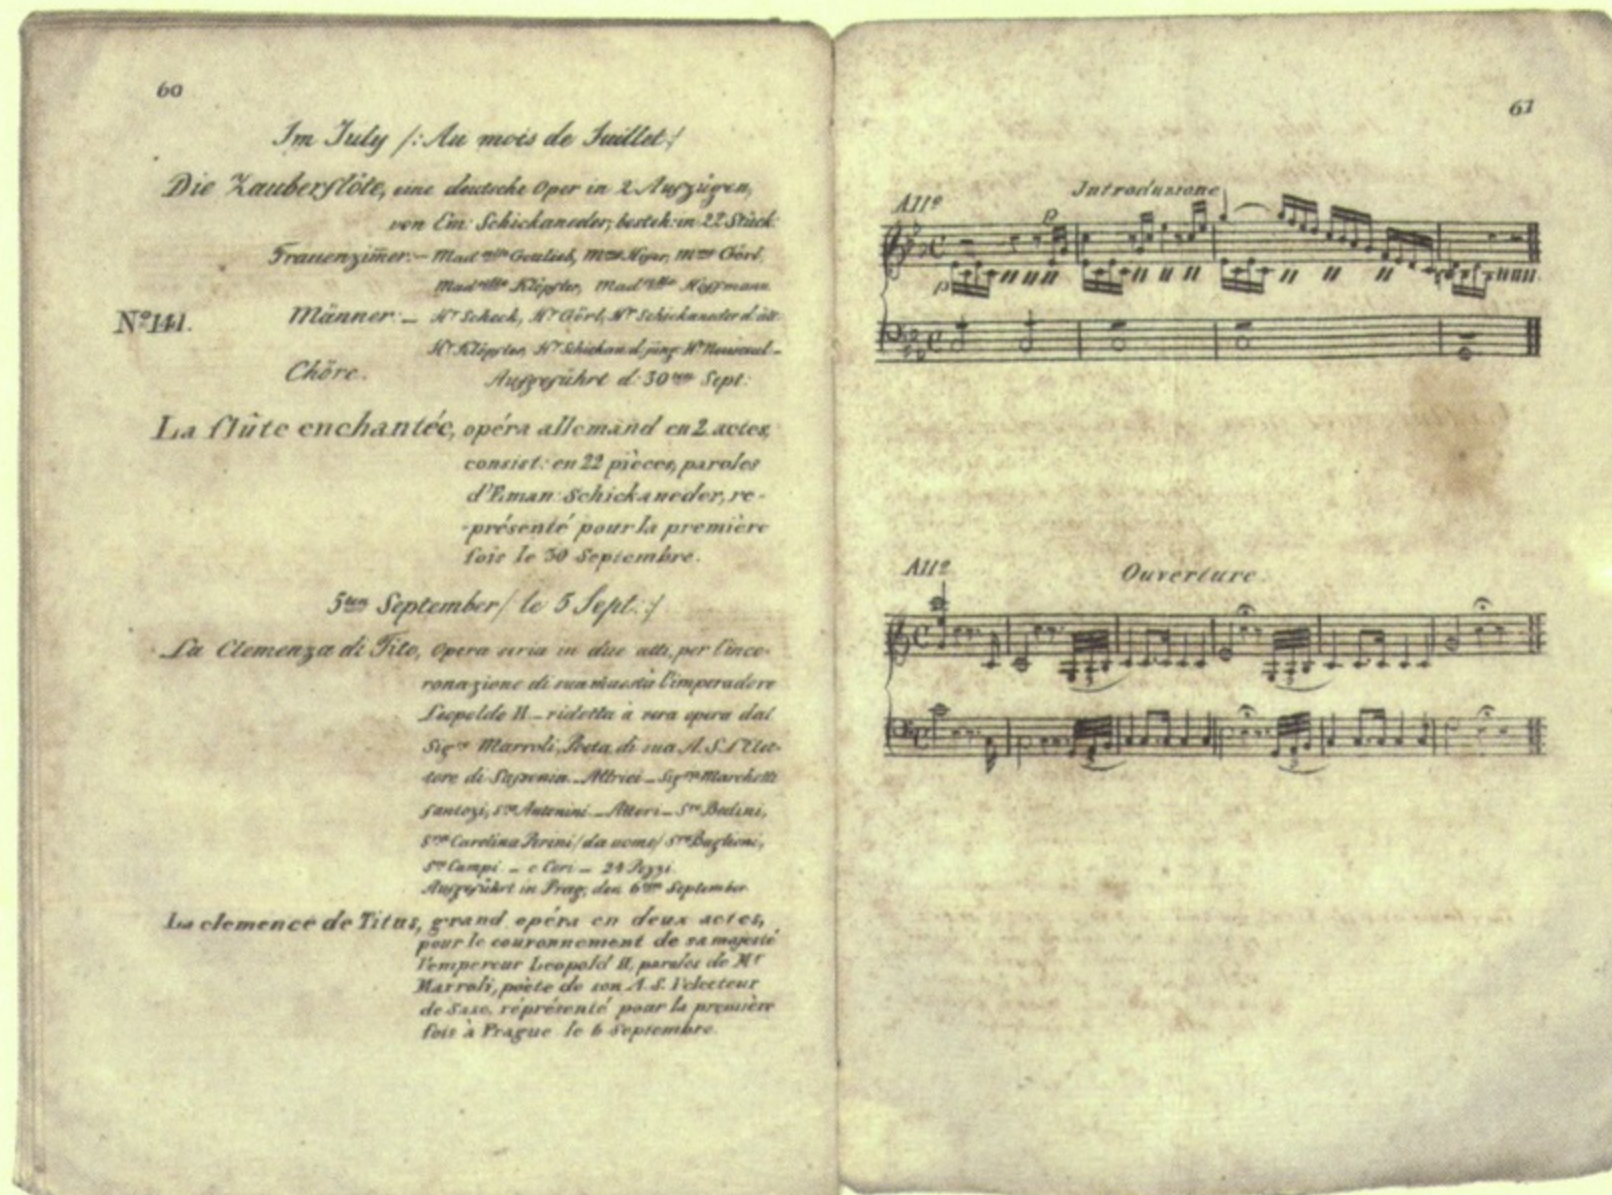 60
Im July /: Au mois de Juillet :/
Die Zauberflöte, eine deutsche Oper in 2 Aufzügen,
von Em: Schickaneder, besteh: in 22 Stück
Frauenzim̅er. — Mad
Hoffmann
Nº 141.
Männer: — Hr Scheck, Hr Görl, Hr Schickaneder d. ält
Chöre.
Aufgeführt d: 30ten Sept:
La flûte enchantée, opéra allemand en 2 actes,
consist: en 22 pièces, paroles
d'Eman: Schickaneder, re-
-présenté pour la première
fois le 30 Septembre.
5ten September / le 5 Sept. :/
La Clemenza di Tito, Opera seria in due atti, per l'inco-
ronazione di sua maestà l'imperadore
Leopoldo II — ridotta à vera opera dal
Sigre Marroli, Poeta di sua A. S.
Attrici — Marchetti
fantozi, Antonini — Attori — Bedini,
Carolina /da uomo/ Baglioni,
Campi — e Cori — 24 Pezzi.
Aufgeführt in Prag, den 6ten September
La clemence de Titus, grand opéra en deux actes,
pour le couronnement de sa majesté
l'empereur Leopold II, paroles de Mr
Marroli, poète de son A. S. l'electeur
de Saxe, réprésenté pour la première
fois à Prague le 6 Septembre.
61
Introduzione
Allº
p
p
Allº
Ouverture.
3
3
3
3